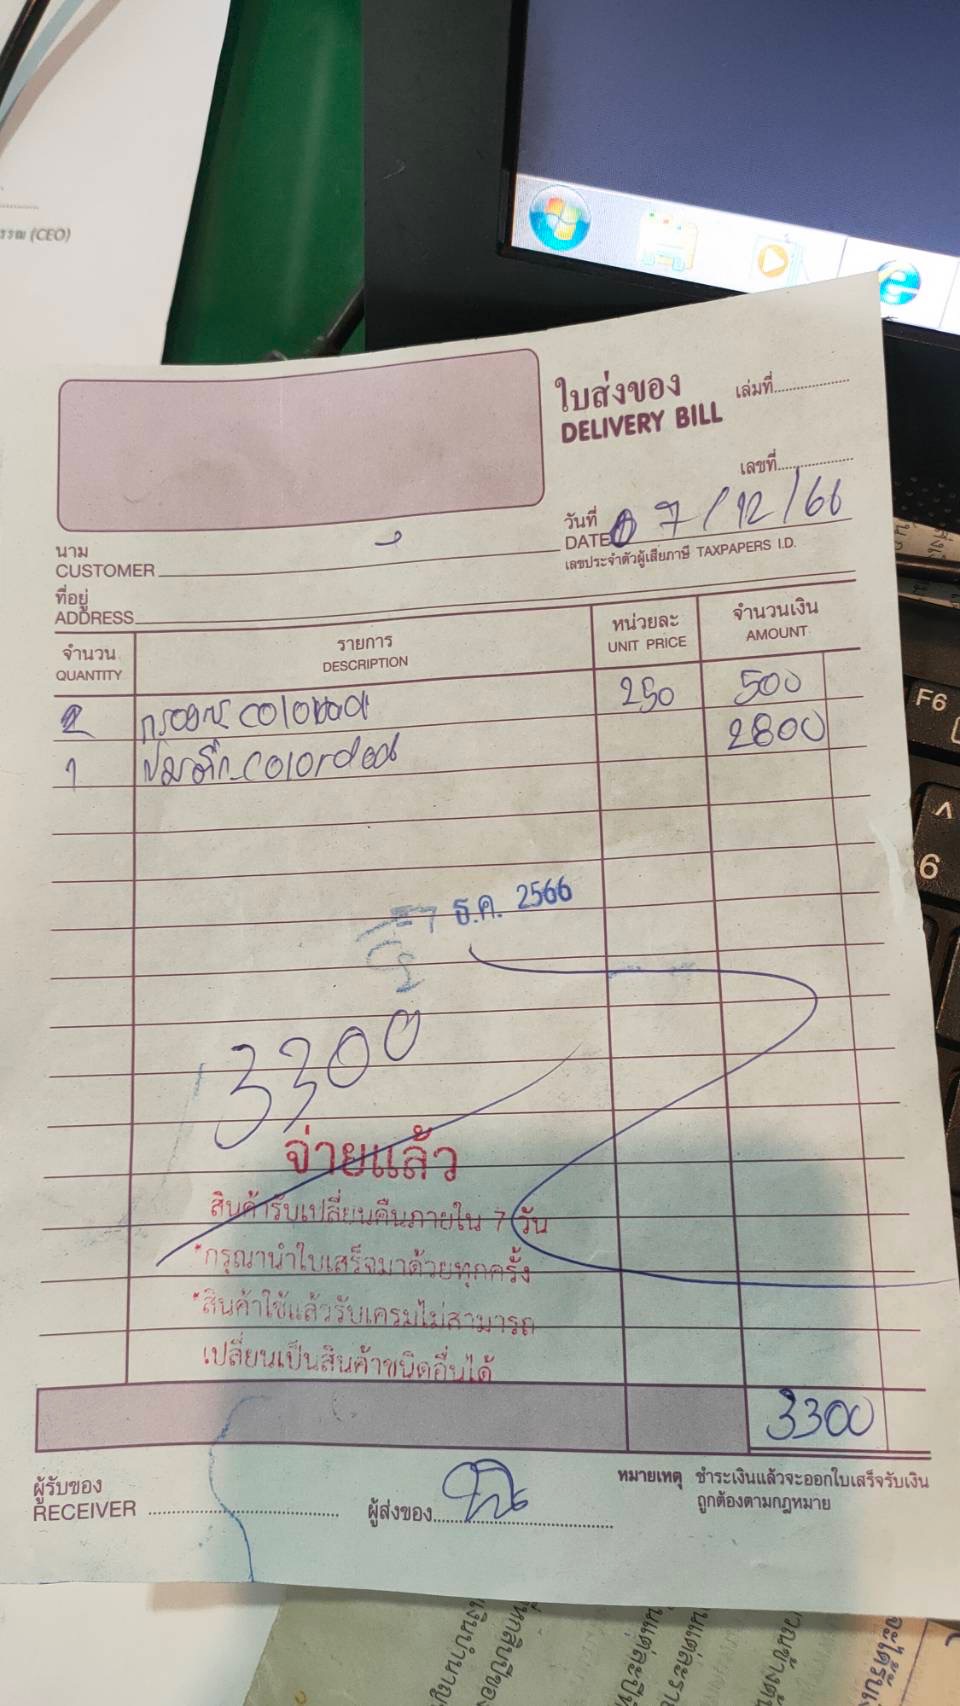 รรม (CEO)
ใบส่งของ
DELIVERY BILL
เล่มที่
เลขที่
วันที่
DATE 07/12/66
เลขประจำตัวผู้เสียภาษี TAXPAPERS I.D.
นาม
CUSTOMER
ที่อยู่
ADDRESS
จำนวน รายการ หน่วยละ จำนวนเงิน
QUANTITY DESCRIPTION UNIT PRICE AMOUNT
2 250 500
1 2800
7 ธ.ค. 2566
3300
จ่ายแล้ว
สินค้ารับเปลี่ยนคืนภายใน 7 วัน
*กรุณานำใบเสร็จมาด้วยทุกครั้ง
*สินค้าใช้แล้วรับเครมไม่สามารถ
เปลี่ยนเป็นสินค้าชนิดอื่นได้
3300
ผู้รับของ
RECEIVER
ผู้ส่งของ
หมายเหตุ ชำระเงินแล้วจะออกใบเสร็จรับเงิน
ถูกต้องตามกฎหมาย
F6
6